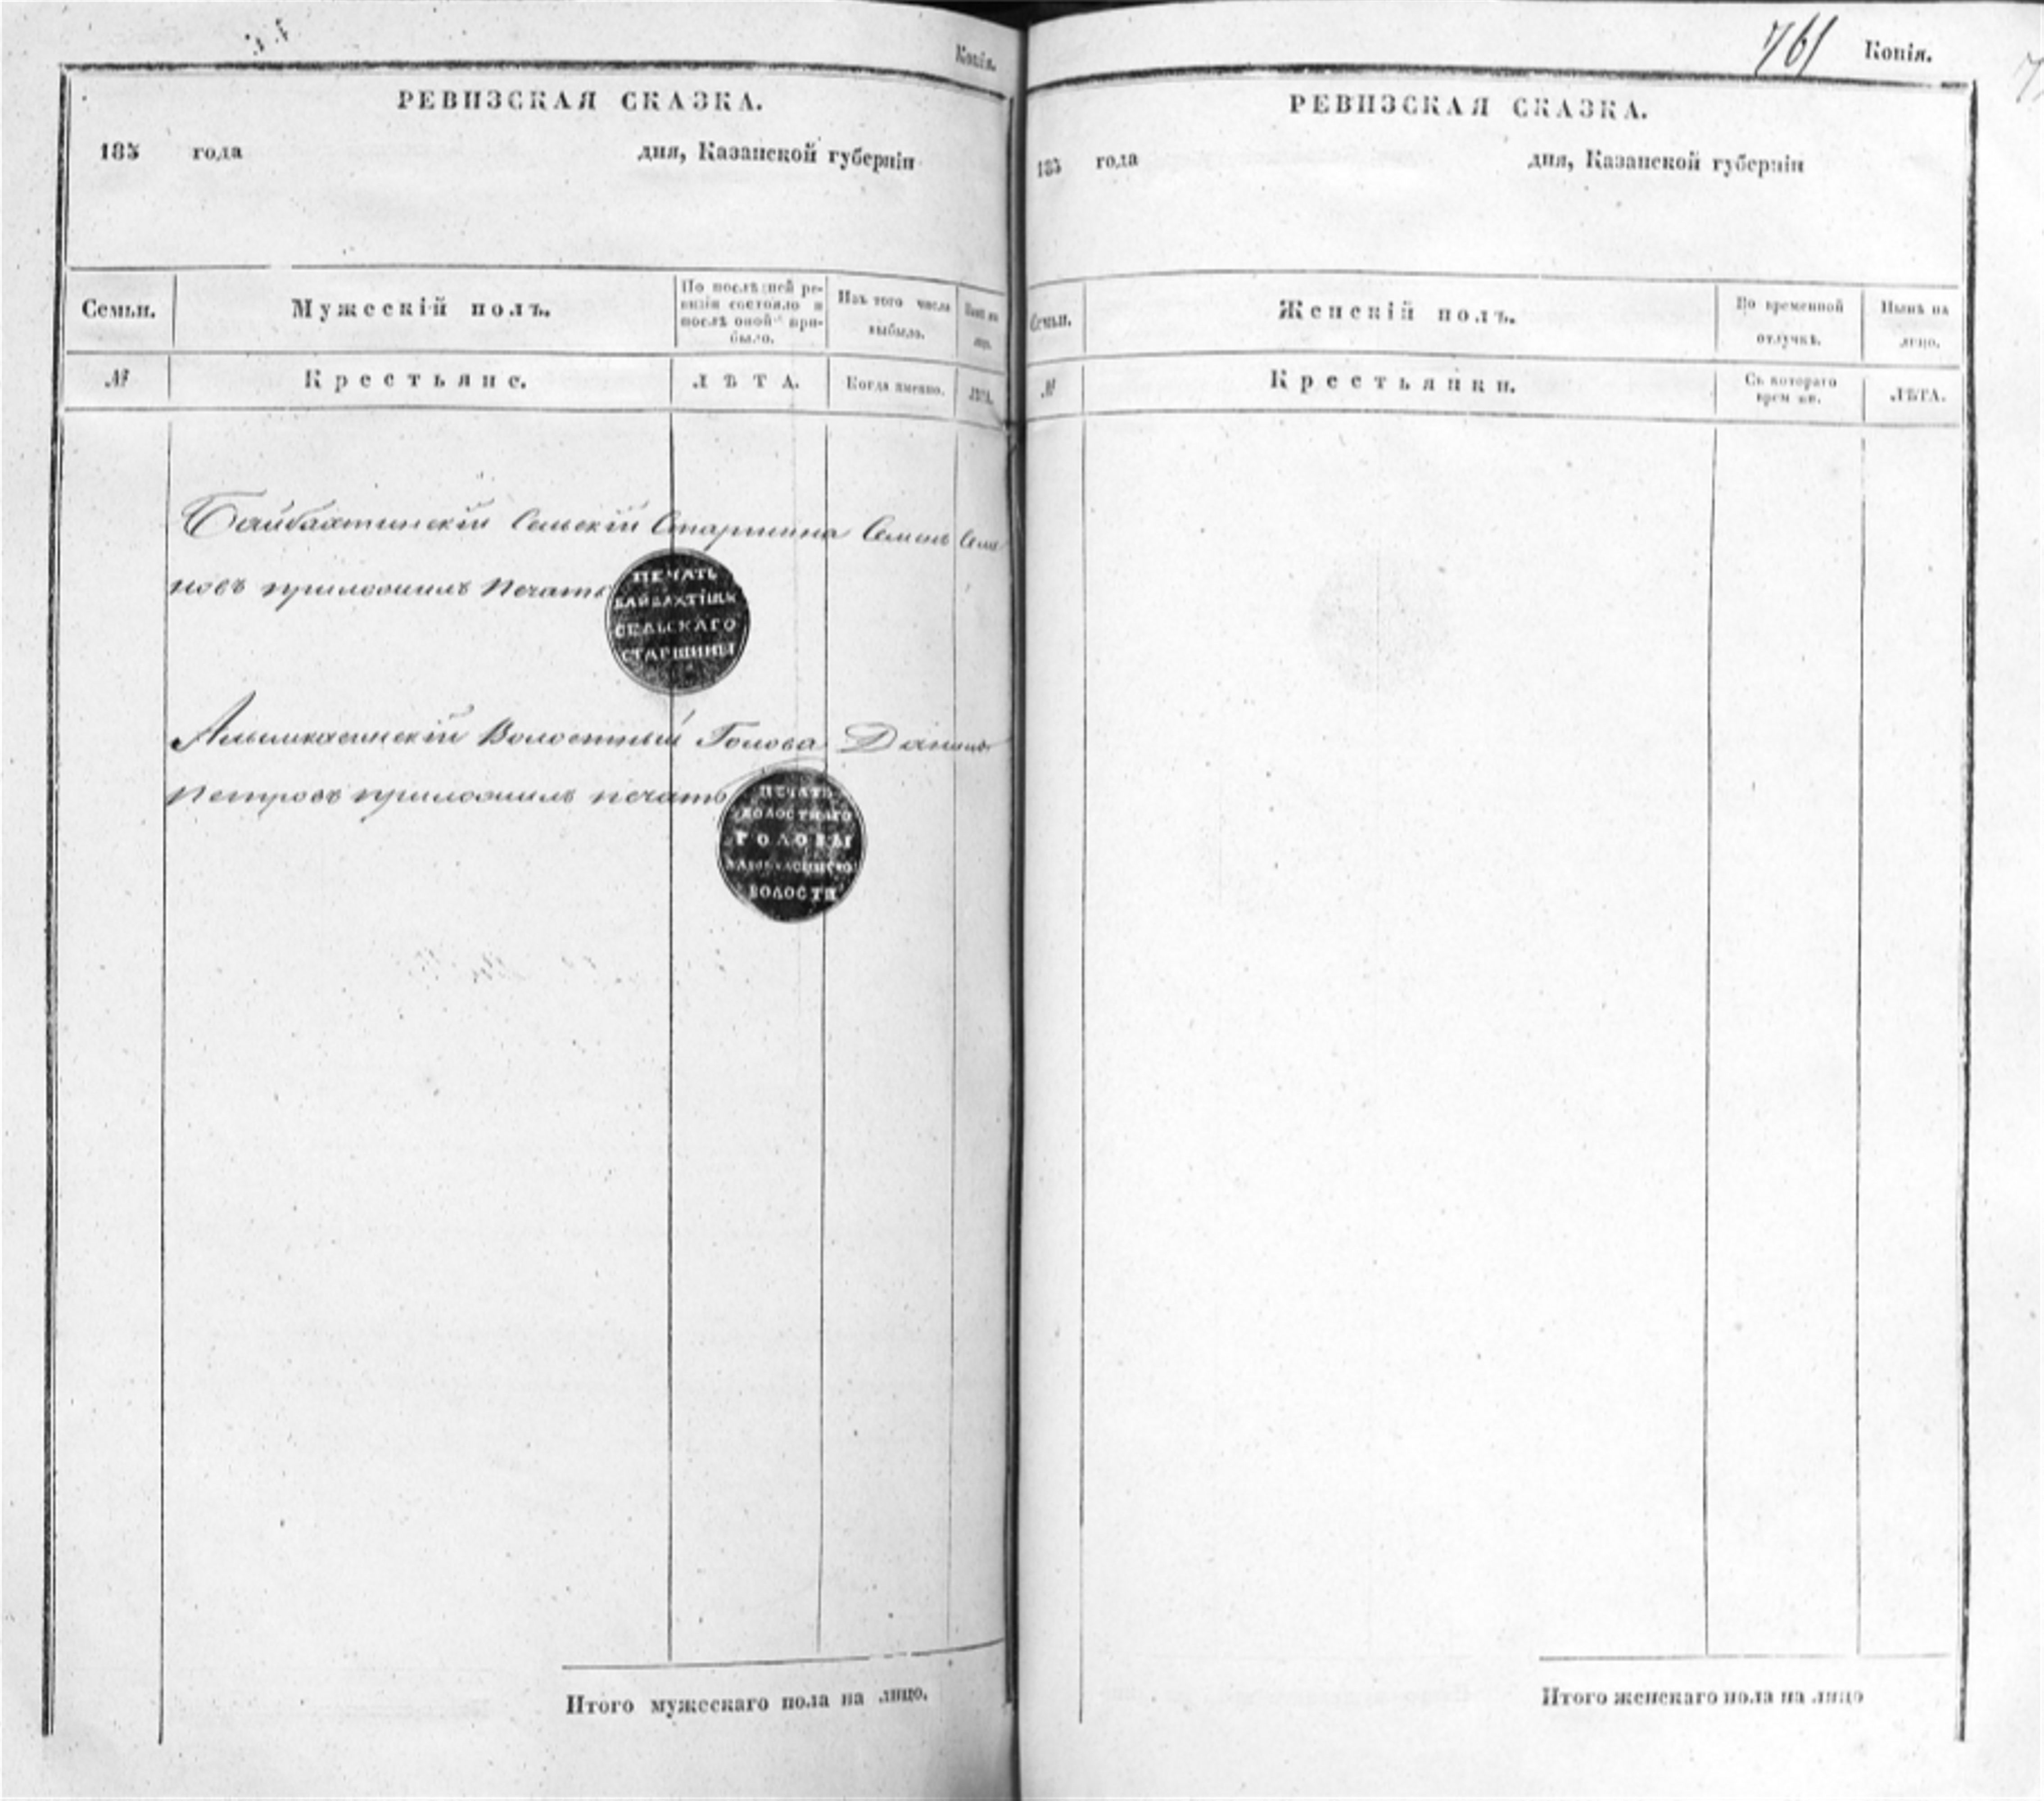 Копія.
РЕВИЗСКАЯ СКАЗКА.
185 года дня, Казанской губерніи
Семьи. Мужескій полъ. По послѣдней ре-
визіи состояло и
послѣ оной при-
было. Изъ того числа
выбыло. Нынѣ на
лицо.
№ Крестьяне. ЛѢТА. Когда именно. ЛѢТА.
Байбахтинскій Сельскій Старшина Семенъ Семе
новъ приложилъ печать
ПЕЧАТЬ
БАЙБАХТІНСК
СЕЛЬСКАГО
СТАРШИНЫ
Волостный Голова
Петровъ приложилъ печать
ПЕЧАТЬ
ВОЛОСТНАГО
ГОЛОВЫ
ВОЛОСТИ
Итого мужескаго пола на лицо.
761 Копія.
РЕВИЗСКАЯ СКАЗКА.
185 года дня, Казанской губерніи
Семьи. Женскій полъ. Во временной
отлучкѣ. Нынѣ на
лицо.
№ Крестьянки. Съ котораго
времени. ЛѢТА.
Итого женскаго пола на лицо